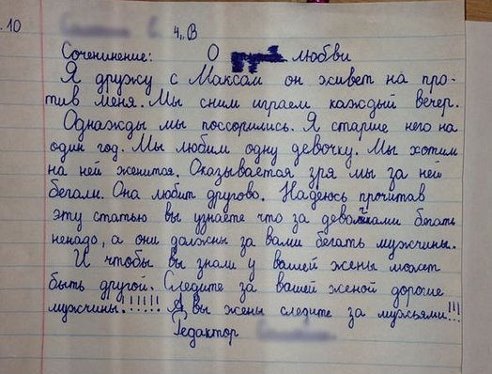 .10
4 „В
Сочениние: О любви
Я дружу с Максом он живет на про-
тив меня. Мы сним играем каждый вечер.
Однажды мы поссорились. Я старше него на
один год. Мы любим одну девочку. Мы хотим
на ней женится. Оказывается зря мы за ней
бегали. Она любит другово. Надеюсь прочитав
эту статью вы узнаете что за девойками бегать
ненадо, а они должны за вами бегать мужчины.
И чтобы вы знали у вашей жены может
быть другой. Следите за вашей женой дорогие
мужчины!!!!!! А вы жены следите за мужьями!!!
Редактор